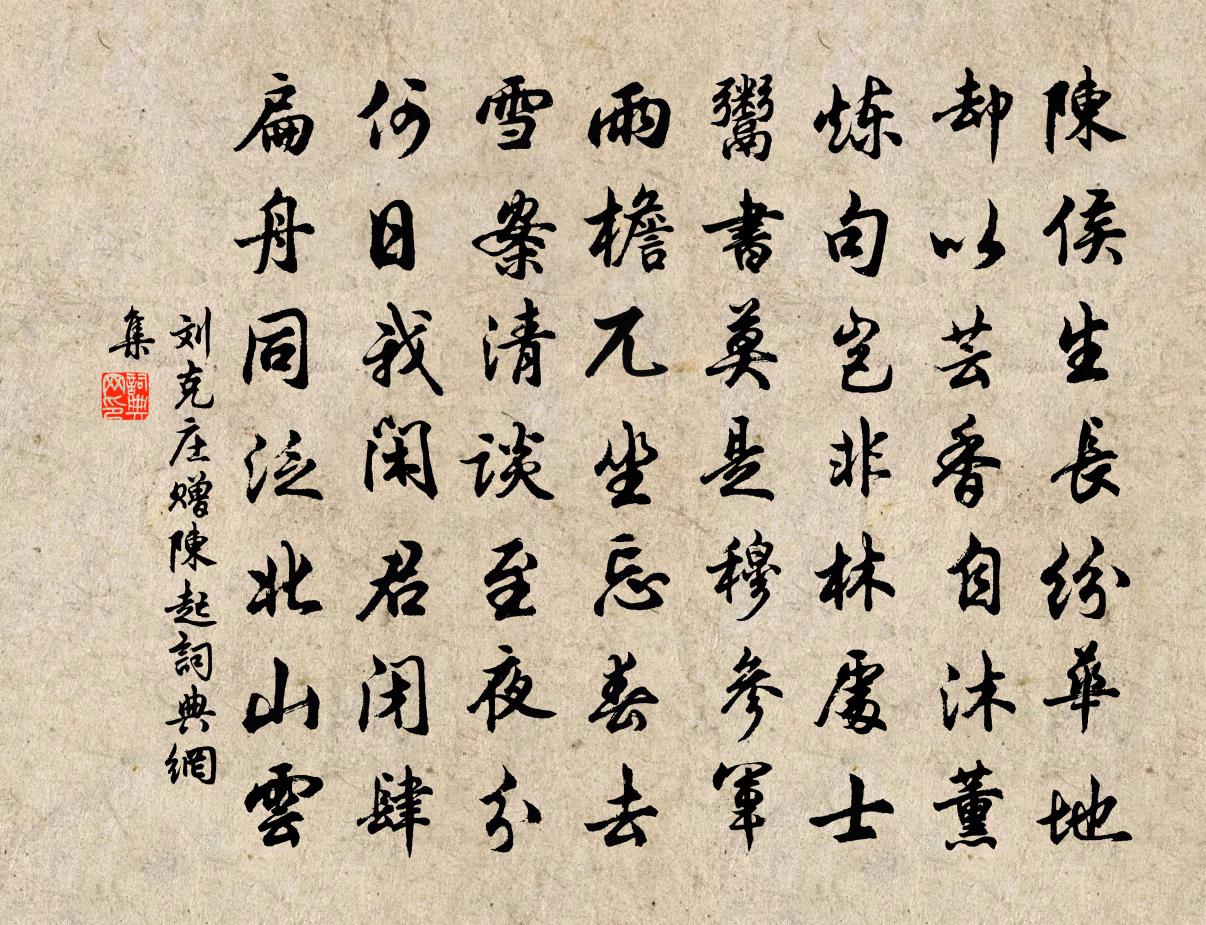 陳侯生長紛華地
却以芸香自沐薰
炼句岂非林處士
鬻書莫是穆參軍
雨檐兀坐忘春去
雪案清談至夜分
何日我閑君閉肆
扁舟同泛北山雲
刘克庄赠陳起詞典網
集
詞典
网印